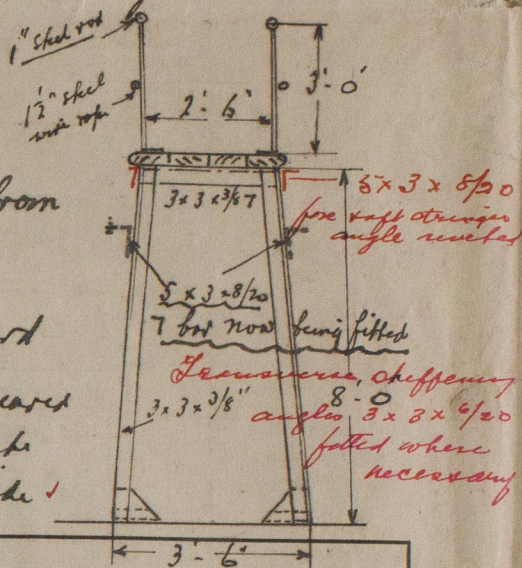 1" steel rod
1½" steel
wire rope
2'- 6"
3'- 0"
from
3 x 3 x 3/8 T
5 x 3 x 8/20
fore & aft stringer
angle riveted
5 x 3 x 8/20
T bar now being fitted
Transverse stiffening
8 - 0
angles 3 x 3 x 6/20
fitted where
necessary
3 x 3 x 3/8"
3'- 6"